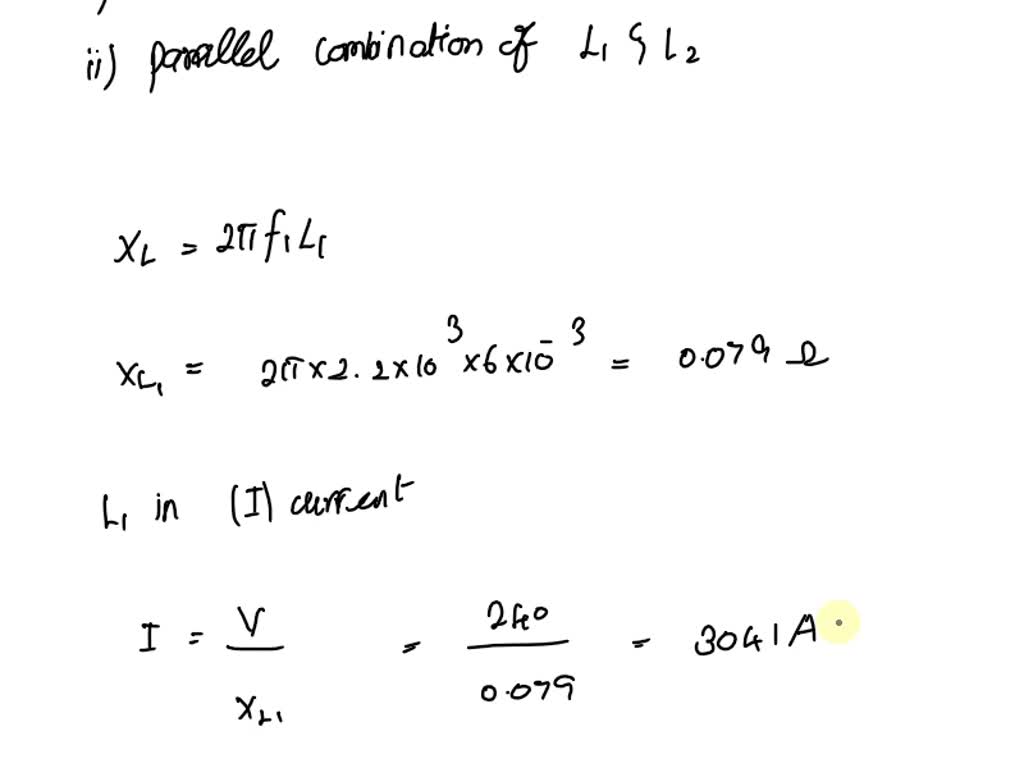 ii) parallel combination of L₁ & L₂
X_L = 2π f₁ L₁
X_L₁ = 2π × 2.2 × 10³ × 6 × 10⁻³ = 0.079 Ω
L₁ in (I) current
I = V / X_L₁ = 240 / 0.079 = 3041 A